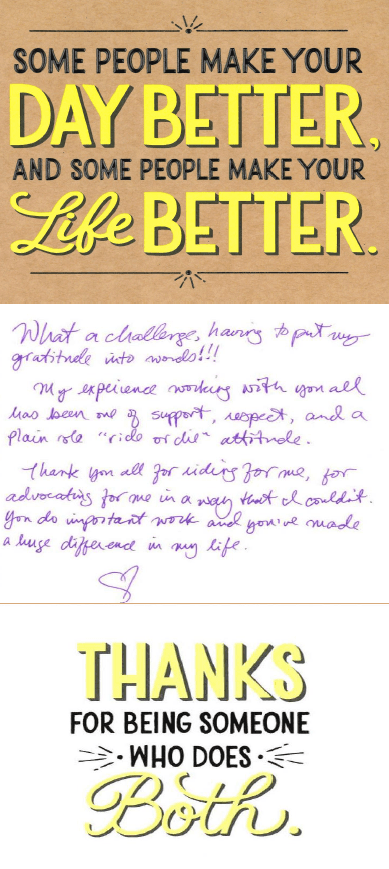 SOME PEOPLE MAKE YOUR
DAY BETTER,
AND SOME PEOPLE MAKE YOUR
Life BETTER.
What a challenge, having to put my
gratitude into words!!!
My experience working with you all
has been one of support, respect, and a
plain ole "ride or die" attitude.
Thank you all for riding for me, for
advocating for me in a way that I couldn't.
You do important work and you've made
a huge difference in my life.
THANKS
FOR BEING SOMEONE
WHO DOES
Both.